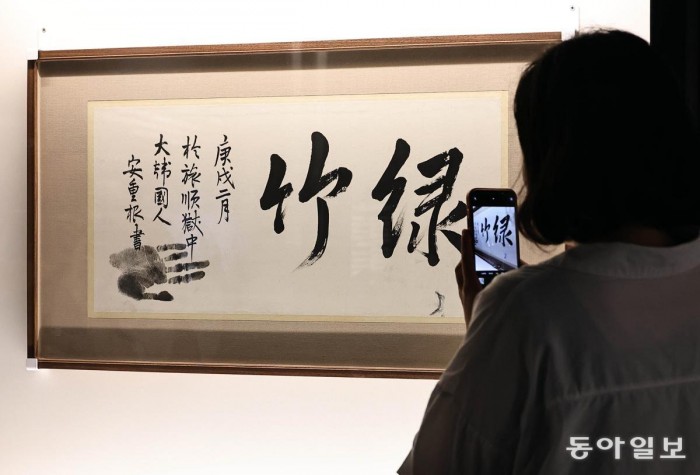 綠竹
庚戌二月
於旅順獄中
大韓國人
安重根書
綠竹
동아일보